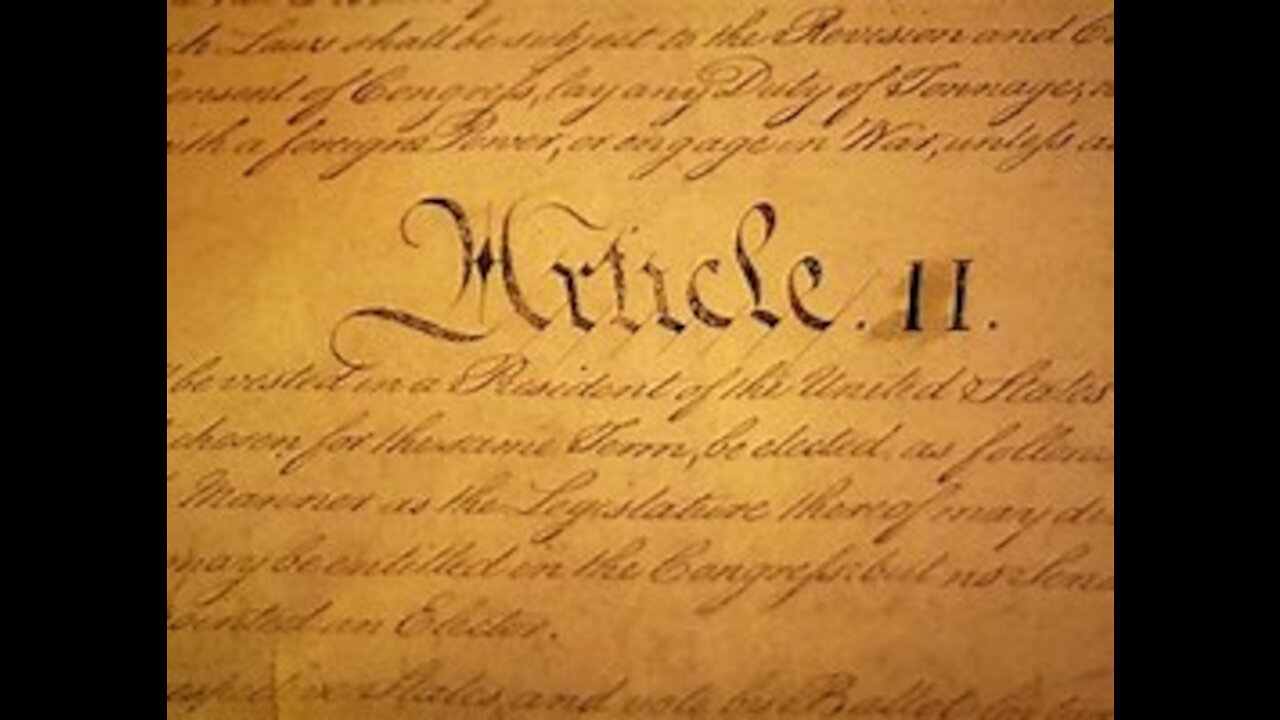 ch Laws shall be subject to the Revision and C
onsent of Congress, lay any Duty of Tonnage,
th a foreign Power, or engage in War, unless a
Article. II.
be vested in a President of the United States
chosen for the same Term, be elected, as follow
Manner as the Legislature thereof may di
may be entitled in the Congress: but no Sena
pointed an Elector.
respective States, and vote by Ballot